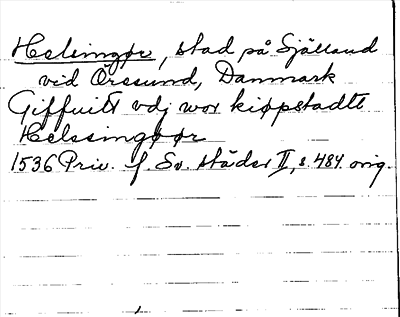 Helsingør, stad på Själland
vid Öresund, Danmark
Giffuitt vdj wor kiøpstadtt
Helssingøør
1536 Priv. f. Sv. städer II, s. 484 orig.